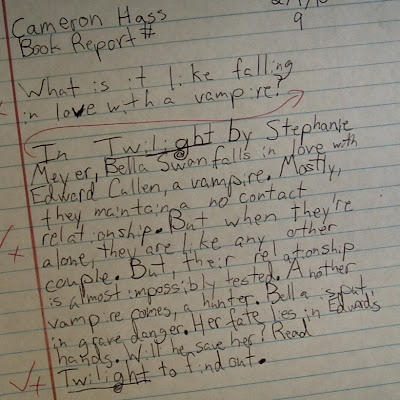 Cameron Hass
Book Report #
9
What is it like falling
in love with a vampire?
In Twilight by Stephanie
Meyer, Bella Swan falls in love with
Edward Cullen, a vampire. Mostly,
they maintain a no contact
relationship. But when they're
alone, they are like any other
couple. But, their relationship
is almost impossibly tested. Another
vampire comes, a hunter. Bella is put,
in grave danger. Her fate lies in Edwards
hands. Will he save her? Read
Twilight to find out.